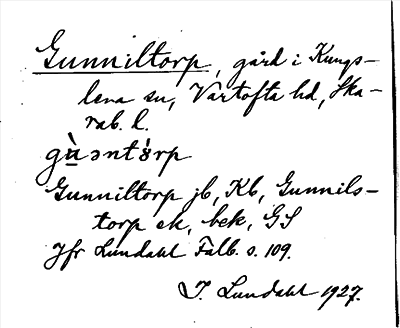 Gunniltorp, gård i Kungs-
lena sn, Vartofta hd, Ska-
rab. l.
gù̠əntọ̀rp
Gunniltorp jb, Kb, Gunnils-
torp ek, bek, GS
Jfr Lundahl Falb. s. 109.
I. Lundahl 1927.